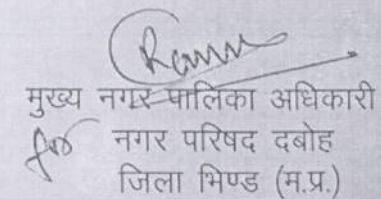 मुख्य नगर पालिका अधिकारी
नगर परिषद दबोह
जिला भिण्ड (म.प्र.)